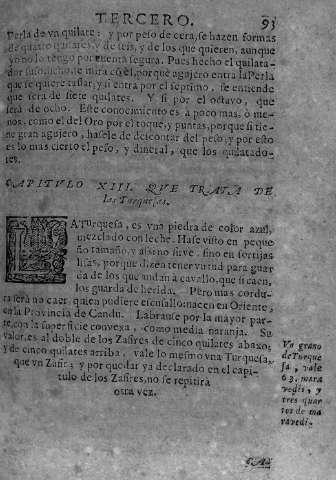 TERCERO. 93
Perla de vn quilate: y por peso de cera, se hazen formas
de quatro quilates, y de seis, y de los que quieren, aunque
yo no lo tengo por cuenta segura. Pues hecho el quilata-
dor susodicho, se mira cō el, porque agujero entra la Perla
que se quiere tassar, y si entra por el septimo, se entiende
que sera de siete quilates. Y si por el octauo, que
será de ocho. Este conocimiento es a poco mas, ò me-
nos, como el del Oro por el toque, y puntas, porque si tie-
ne gran agujero, hasele de descontar del peso, y por esto
es lo mas cierto el peso, y dineral, que los quilatado-
res.
CAPITVLO XIII. QVE TRATA DE
las Turquesas.
LA Turquesa, es vna piedra de color azul,
mezclado con leche. Hase visto en peque
ño tamaño, y assi no sirue, sino en sortijas
lisas, porque dizen tener virtud para guar
da de los que andan a cavallo, que si caen,
los guarda de herida. Pero mas cordu-
ra será no caer, quien pudiere escusallo: nacen en Oriente,
en la Prouincia de Candu. Labranse por la mayor par-
te, con la superficie convexa, como media naranja. Su
valor, es al doble de los Zafires de cinco quilates abaxo,
y de cinco quilates arriba, vale lo mesmo vna Turquesa,
que vn Zafir; y por quedar ya declarado en el capi-
tulo de los Zafires, no se repitirà
otra vez.
Vn grano
de Turque
sa, vale
63. mara
vedis, y
tres quar
tos de ma
ravedi.